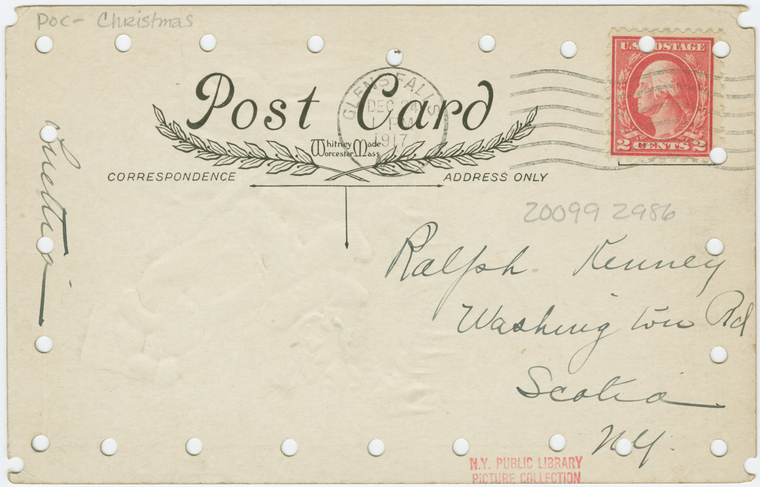 POC- Christmas
U.S. POSTAGE
2 CENTS 2
GLENS FALLS
DEC 24
1917
Post Card
Whitney Made
Worcester Mass
CORRESPONDENCE
ADDRESS ONLY
20099 2986
Ralph Kenney
Washington Rd
Scotia
N.Y.
N.Y. PUBLIC LIBRARY
PICTURE COLLECTION